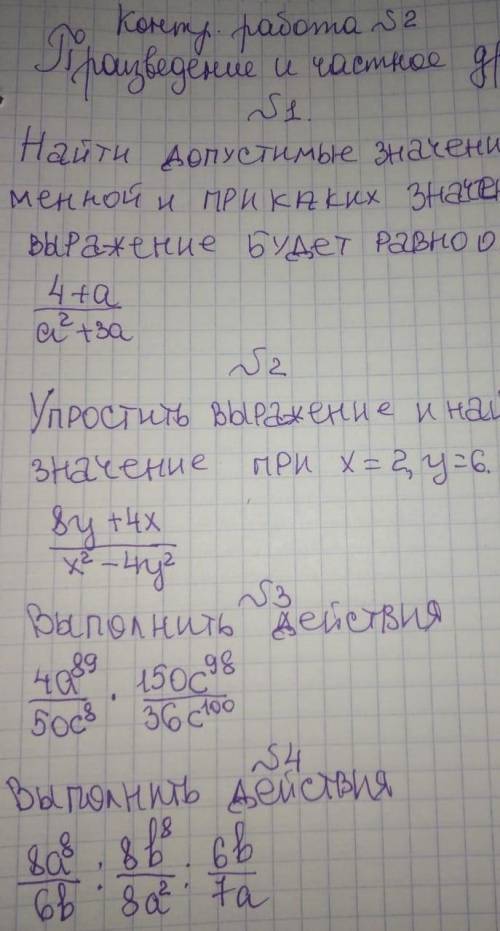 Контр. работа №2
Произведение и частное др
№1.
Найти допустимые значени
менной и при каких значен
выражение будет равно 0
4+a
a²+3a
№2
Упростить выражение и най
значение при x=2, y=6.
8y+4x
x²-4y²
№3
Выполнить действия
4a⁸⁹/50c⁸ · 150c⁹⁸/36c¹⁰⁰
№4
Выполнить действия
8a⁸/6b : 8b⁸/8a² : 6b/7a